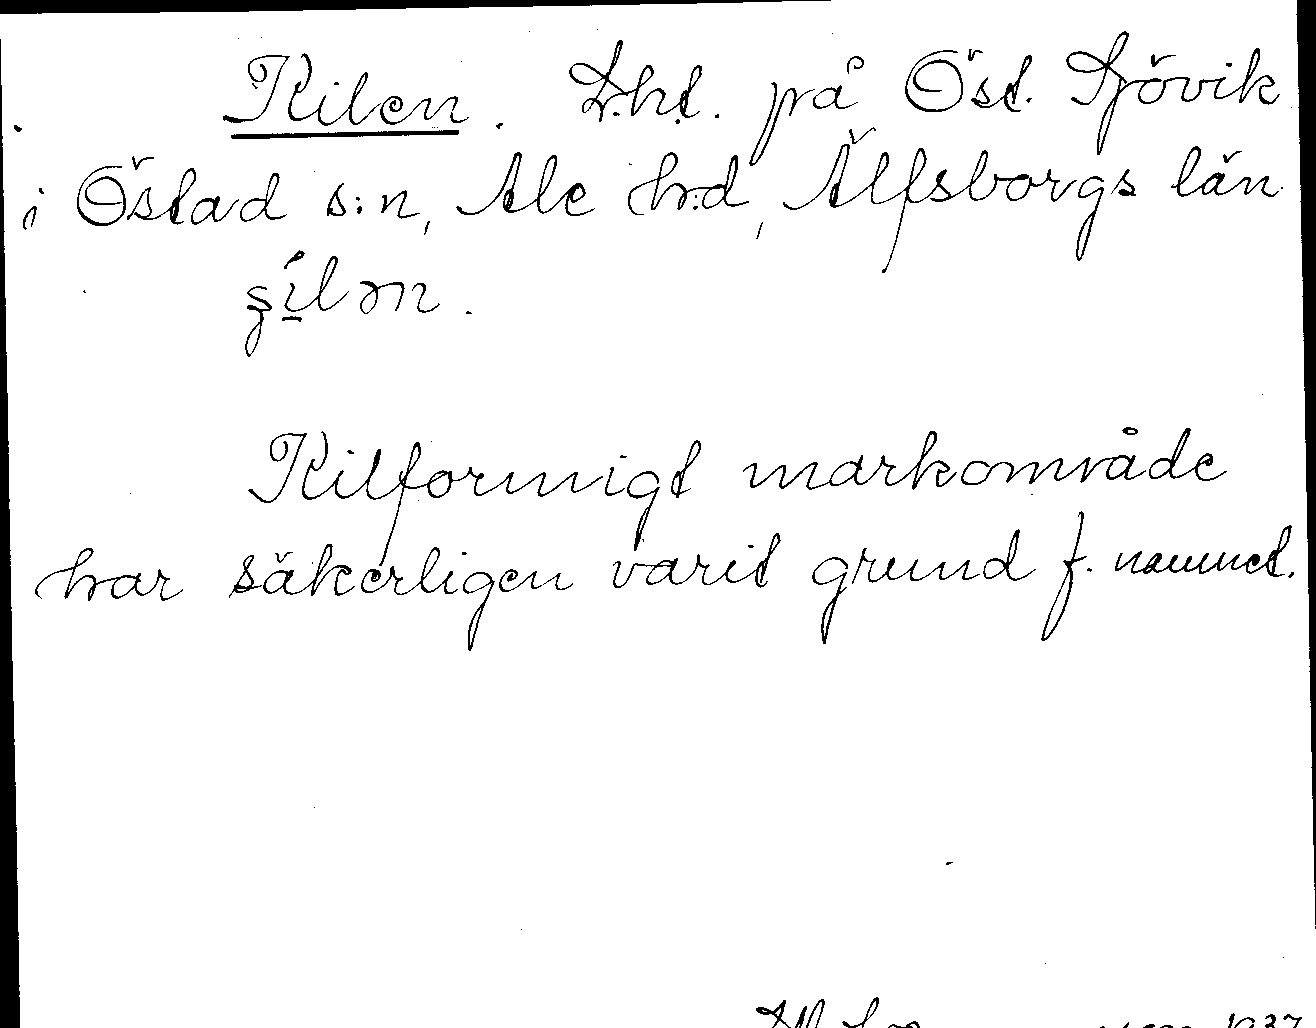 Kilen. Lht. på Öst. Sjövik
i Östad s:n, Ale h:d, Älfsborgs län
şílən.
Kilformigt markområde
har säkerligen varit grund f. namnet.
1937